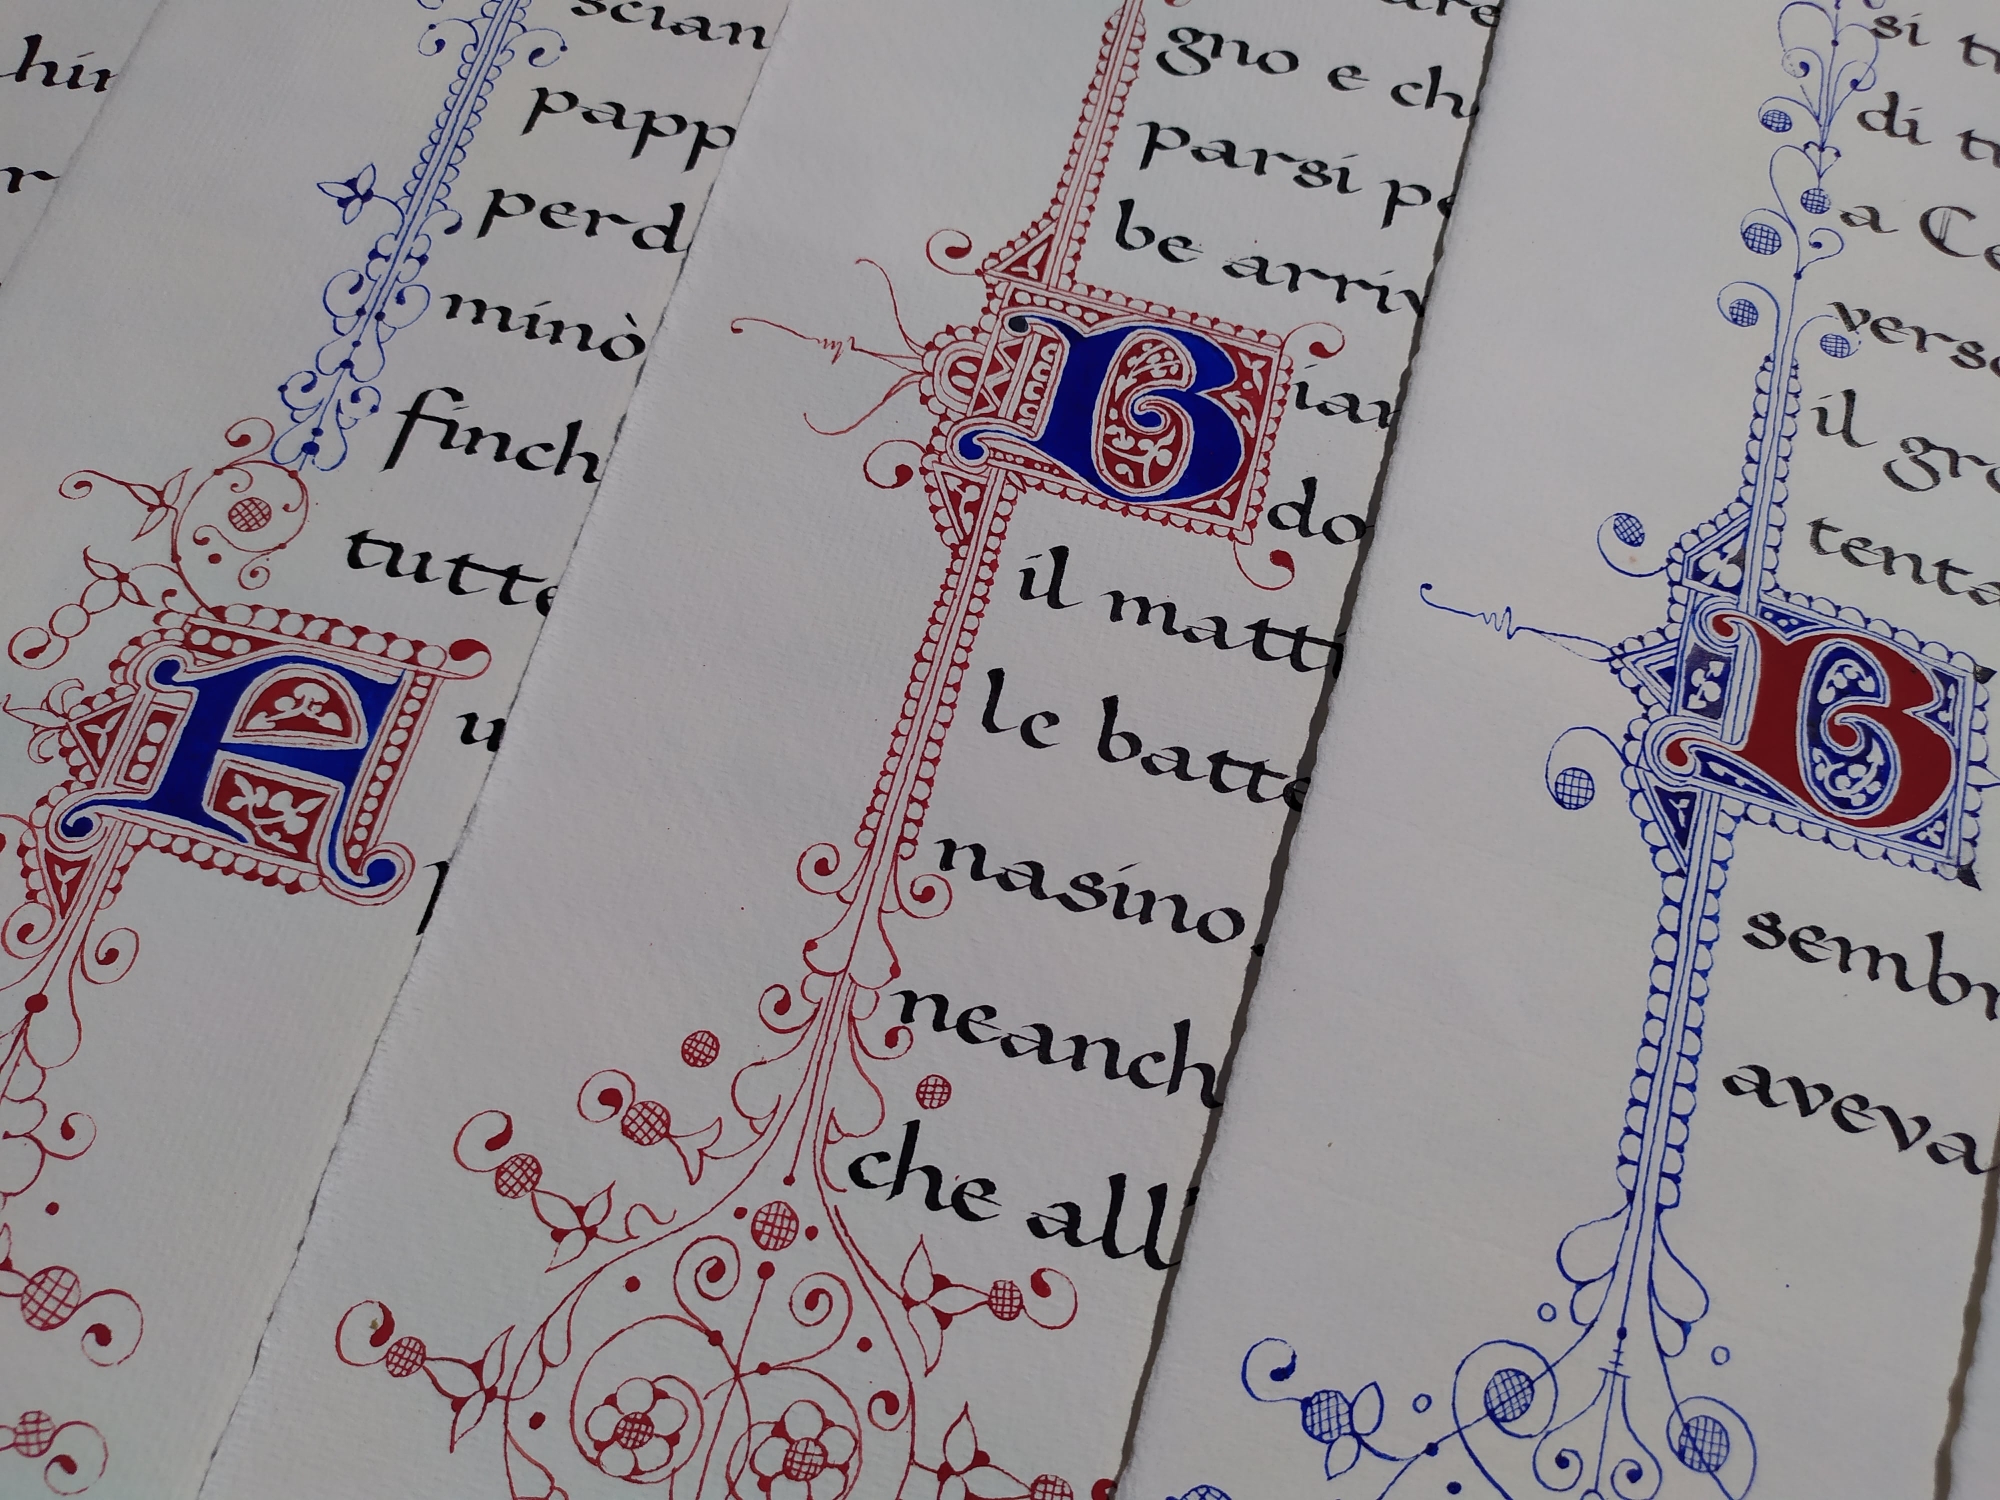 hin
r
scian
papp
perd
minò
finch
tutte
Au
gno e ch
parsi pe
be arriv
Bian
do
il matti
le batte
nasino.
neanch
che all'
si tu
di tu
a Ce
verso
il gro
tenta
B
sembr
aveva